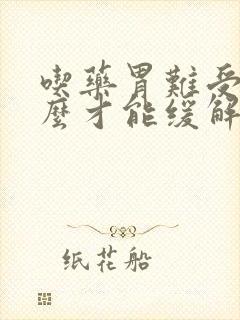 喫藥胃難受
麼才能缓解
纸花船